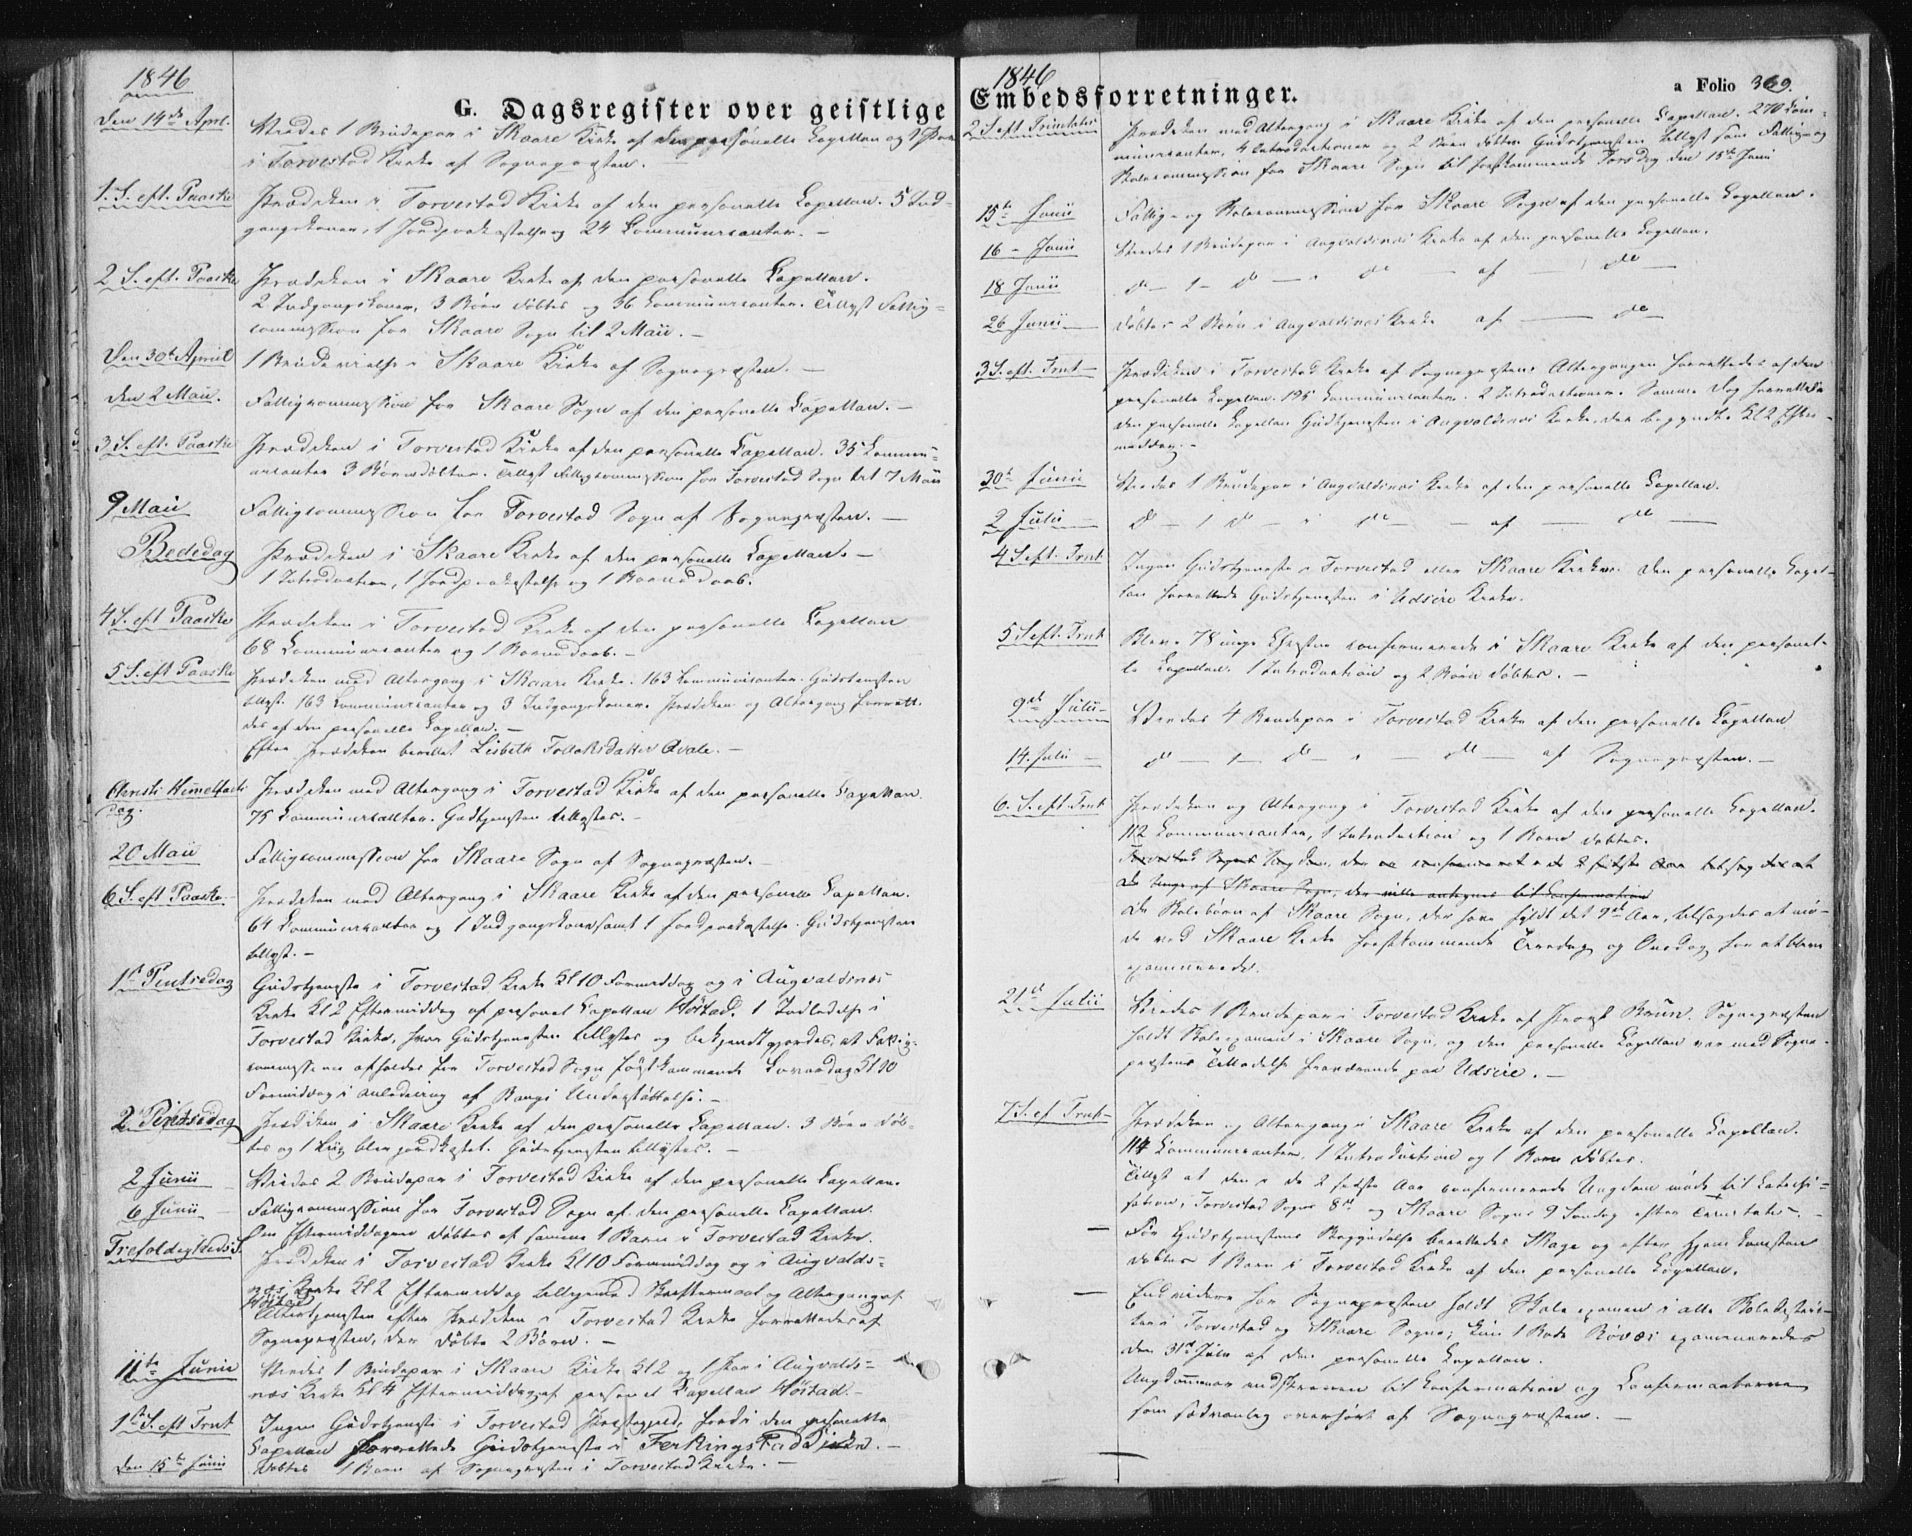 1846
G. Dagsregister over geistlige
Den 14de April. Viedes 1 Brudepar i Skaare Kirke af den personelle Capellan og 1 Par
i Torvestad Kirke af Sognepræsten. —
1. S. eft. Paaske Prædiken i Torvestad Kirke af den personelle Capellan. 5 Ind-
gangskoner, 1 Jordpaakastelse og 24 Communicanter. —
2 S. eft. Paaske Prædiken i Skaare Kirke af den personelle Capellan.
2 Indgangskoner, 3 Børn døbtes og 36 Communicanter. Tillyst Fattig-
commission for Skaare Sogn til 2 Maii. —
Den 30te April 1 Brudevielse i Skaare Kirke af Sognepræsten. —
den 2 Maii. Fattigcommission for Skaare Sogn af den personelle Capellan. —
3 S. eft. Paaske Prædiken i Torvestad Kirke af den personelle Capellan. 35 Commu-
nicanter 3 Børn døbtes. Tillyst Fattigcommission for Torvestad Sogn til 7 Maii
9 Maii Fattigcommission for Torvestad Sogn af Sognepræsten. —
Bededag Prædiken i Skaare Kirke af den personelle Capellan. —
1 Introduction, 1 Jordpaakastelse og 1 Barnedaab.
4 S. eft Paaske Prædiken i Torvestad Kirke af den personelle Capellan
68 Communicanter og 1 Barnedaab. —
5 S. eft Paaske Prædiken med Altergang i Skaare Kirke. 163 Communicanter. Gudstjensten
tillyst. 163 Communicanter og 3 Indgangskoner. Prædiken og Altergang forrett-
des af den personelle Capellan. —
Efter Prædiken berettet Lisbeth Tollaksdatter Qvale. —
Christi Himelfarts Prædiken med Altergang i Torvestad Kirke af den personelle Capellan.
dag. 75 Communicanter. Gudtjensten tillystes. —
20 Maii Fattigcommission for Skaare Sogn af Sognepræsten. —
6 S. eft Paaske. Prædiken med Altergang i Skaare Kirke af den personelle Capellan.
64 Communicanter og 1 Indgangskone samt 1 Jordpaakastelse. Gudstjensten
tillyst. —
1st Pintsedag Gudstjeneste i Torvestad Kirke Kl 10 Formiddag og i Augvaldsnæs
Kirke Kl 2 Eftermiddag af personel Capellan Høstad. 1 Indledelse i
Torvestad Kirke, hvor Gudstjensten tillystes og bekjendtgjordes, at Fattig-
commission afholdes for Torvestad Sogn førstkommende Løverdag Kl 10
Formidag i anledning af Understøttelse. —
2 Pintsedag Prædiken i Skaare Kirke af den personelle Capellan. 3 Børn døb-
tes og 1 Liig blev jordkastet. Gudstjensten tillystes. —
2 Junii Viedes 2 Brudepar i Torvestad Kirke af den personelle Capellan.
6 Junii Fattigcommission for Torvestad Sogn af den personelle Capellan.
Om Eftermiddagen døbtes af samme 1 Barn i Torvestad Kirke.
Trefoldigheds S. Prædiken i Torvestad Kirke Kl 10 Formiddag og i Augvalds-
næs Kirke Kl 2 Eftermiddag tilligemed Skriftemaal og Altergang af
Høstad
Altertjensten efter Prædiken i Torvestad Kirke forrettedes af
Sognepræsten, der døbte 2 Børn. —
11te Junii Viedes 1 Brudepar i Skaare Kirke Kl 2 og 1 Par i Augvalds-
næs Kirke Kl 4 Eftermiddag af personel Capellan Høstad. —
1st S. eft Trnt Ingen Gudstjeneste i Torvestad Præstegjeld, fordi den personelle
Capellan forrettede Gudstjeneste i Ferkingstad Kirke. —
Den 15te Junii Døbtes 1 Barn af Sognepræsten i Torvestad Kirke. —
1846
Embedsforretninger.
a Folio 369.
2 S. eft Trinitatis Prædiken med Altergang i Skaare Kirke af den personelle Capellan. 270 Com-
municanter, 4 Introductioner og 2 Børn døbtes. Gudstjensten tillyst som Fattig- og
Skolecommission for Skaare Sogn til førstkommende Torsdag den 15te Junii
15te Junii Fattig- og Skolecommission for Skaare Sogn af den personelle Capellan.
16 – Junii Viedes 1 Brudepar i Augvaldsnæs Kirke af den personelle Capellan.
18 Junii do — 1 — do — i do — af do —
26 Junii — døbtes 2 Børn i Augvaldsnæs Kirke af — do
3 S. eft. Trnt — Prædiken i Torvestad Kirke af Sognepræsten. Altergangen forrettedes af den
personelle Capellan. 195 Communicanter. 2 Introductioner. Samme Dag forrettede
den personelle Capellan Gudtjensten i Augvaldsnæs Kirke, der begyndte Kl 2 Efter-
middag. —
30te Junii Viedes 1 Brudepar i Augvaldsnæs Kirke af den personelle Capellan.
2 Julii — do — 1 do — i do — af — do —
4 S eft. Trnt Ingen Gudstjeneste i Torvestad eller Skaare Kirker. Den personelle Capel-
lan forrettede Gudstjensten i Udsire Kirke.
5 S eft. Trnt Blev 78 unge Christne confirmerede i Skaare Kirke af den personel-
le Capellan. 1 Introduction og 2 Børn døbtes. —
9de Julii — Viedes 4 Brudepar i Torvestad Kirke af den personelle Capellan
14. Julii — do — 1 — do — i — do — af Sognepræsten. —
6. S. eft Trnt Prædiken og Altergang i Torvestad Kirke af den personelle Capellan.
112 Communicanter, 1 Introduction og 1 Barn døbtes.
Torvestad Sogns Ungdom, der er confirmeret i de 2 sidste Aar
De unge af Skaare Sogn, der ville antegnes til Confirmation
De Skolebørn af Skaare Sogn, der have fyldt det 9de Aar, tilsagdes at mø-
de ved Skaare Kirke førstkommende Tirsdag og Onsdag for at blive
examinerede.
21de Julii Viedes 1 Brudepar i Torvestad Kirke af Provst Bruun. Sognepræsten
holdt Skoleexamen i Skaare Sogn, og den personelle Capellan var med Sogne-
præstens Tilladelse fraværende paa Udsire. —
7 S. ef Trnt — Prædiken og Altergang i Skaare Kirke af den personelle Capellan.
114 Communicanter, 1 Introduction og 1 Barn døbtes.
Tillyst at den i de 2 sidste Aar confirmerede Ungdom møde til Catechi-
sation, Torvestad Sogns 8de og Skaare Sogns 9 Søndag efter Trinitatis. —
— Før Gudstjenstens Begyndelse berettedes Skage og efter Hjemkomsten
døbtes 1 Barn i Torvestad Kirke af den personelle Capellan.
— Endvidere har Sognepræsten holdt Skoleexamen i alle Skoledistric-
ter i Torvestad og Skaare Sogne; kun 1 Rode Røvær examineredes
den 31te Julii af den personelle Capellan.
Ungdommen indskreven til Confirmation og Confirmanterne
som sædvanlig overhørt af Sognepræsten. —